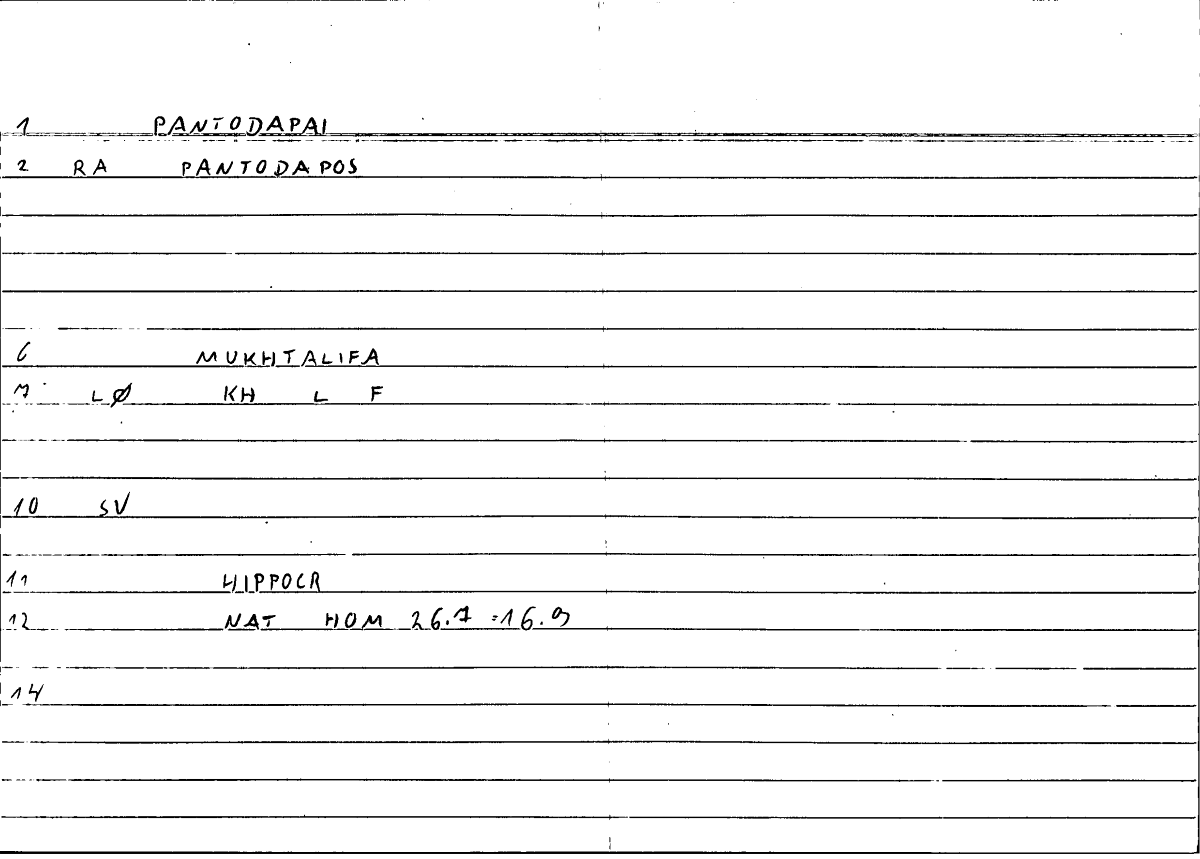 1 PANTODAPAI
2 RA PANTODAPOS
6 MUKHTALIFA
7 LØ KH L F
10 SV
11 HIPPOCR
12 NAT HOM 26.7 =16.9
14